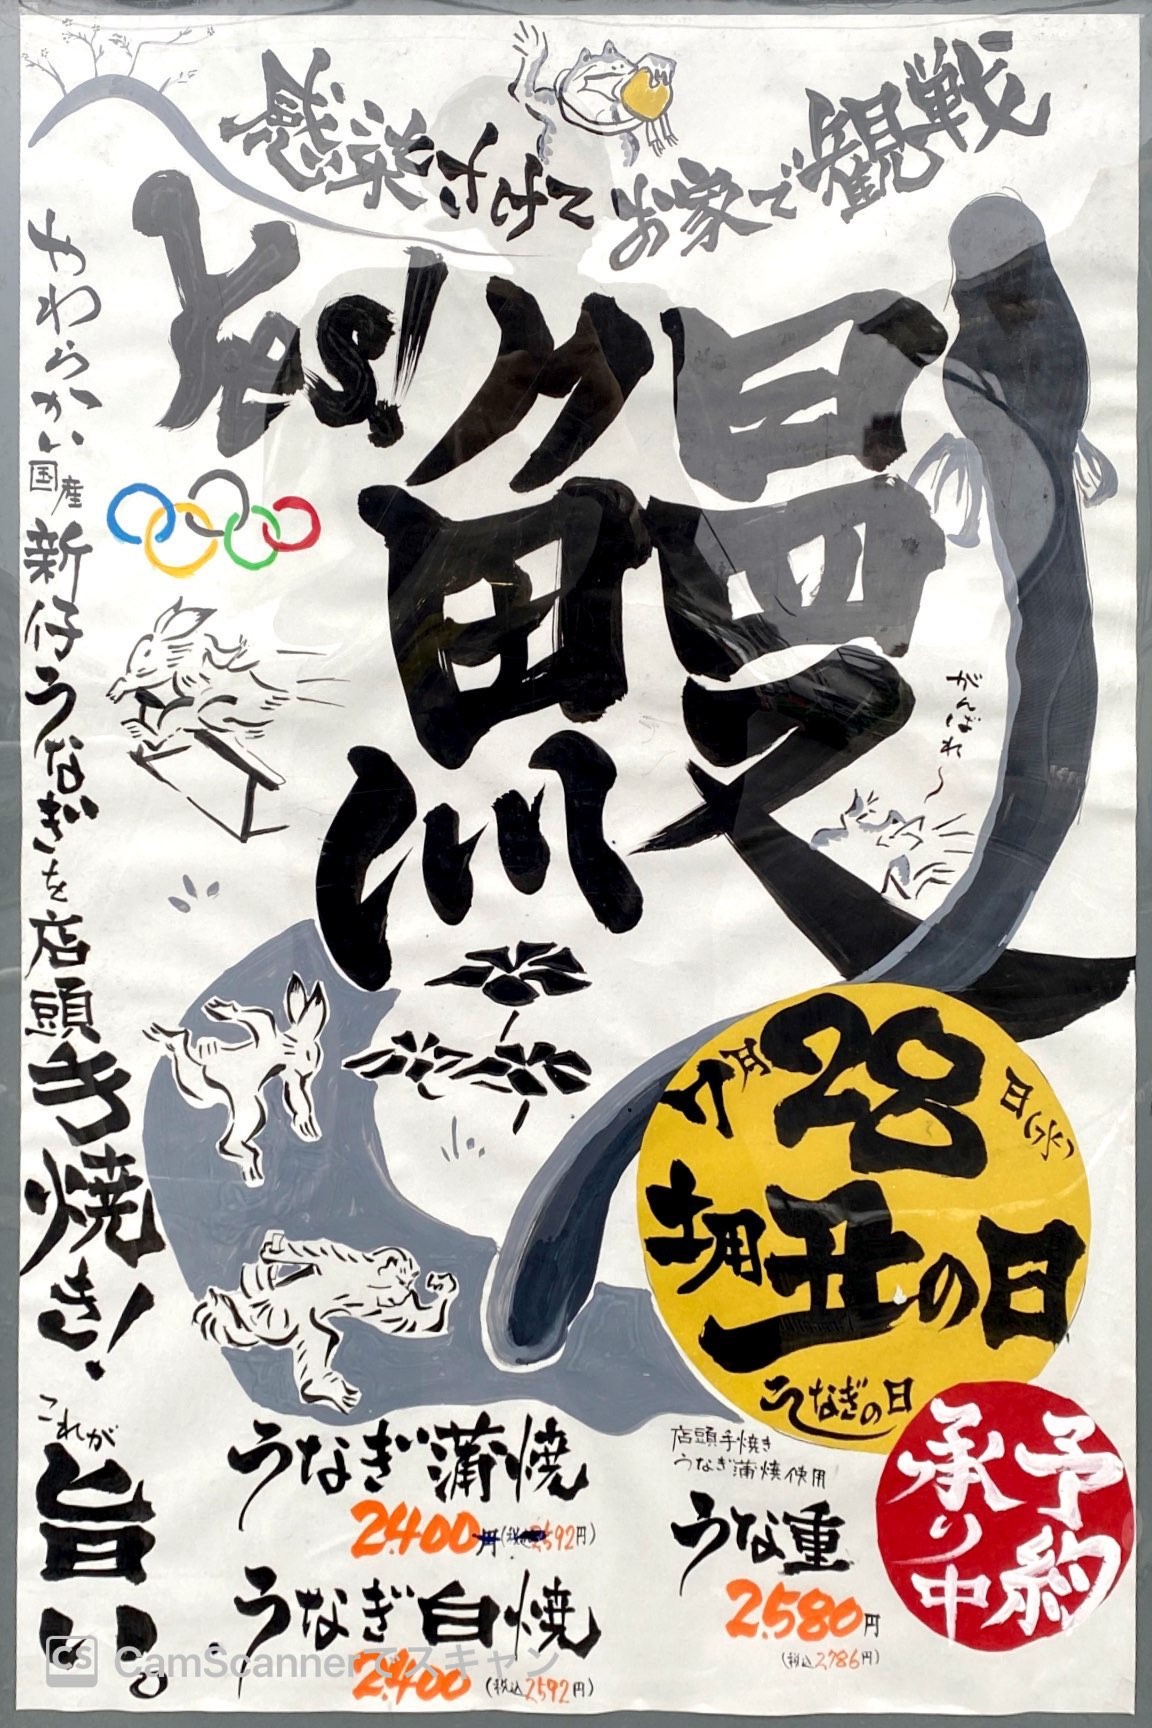 感染さけて お家で観戦
Yes! 鰻
やわらかい国産新仔うなぎを店頭手焼き!
これが旨い。
がんばれ〜
7月28日(水)
土用丑の日
うなぎの日
予約
承り中
うなぎ蒲焼
2,400円(税込2592円)
うなぎ白焼
2,400(税込2592円)
店頭手焼き
うなぎ蒲焼使用
うな重
2,580円
(税込2,786円)
CS CamScannerでスキャン